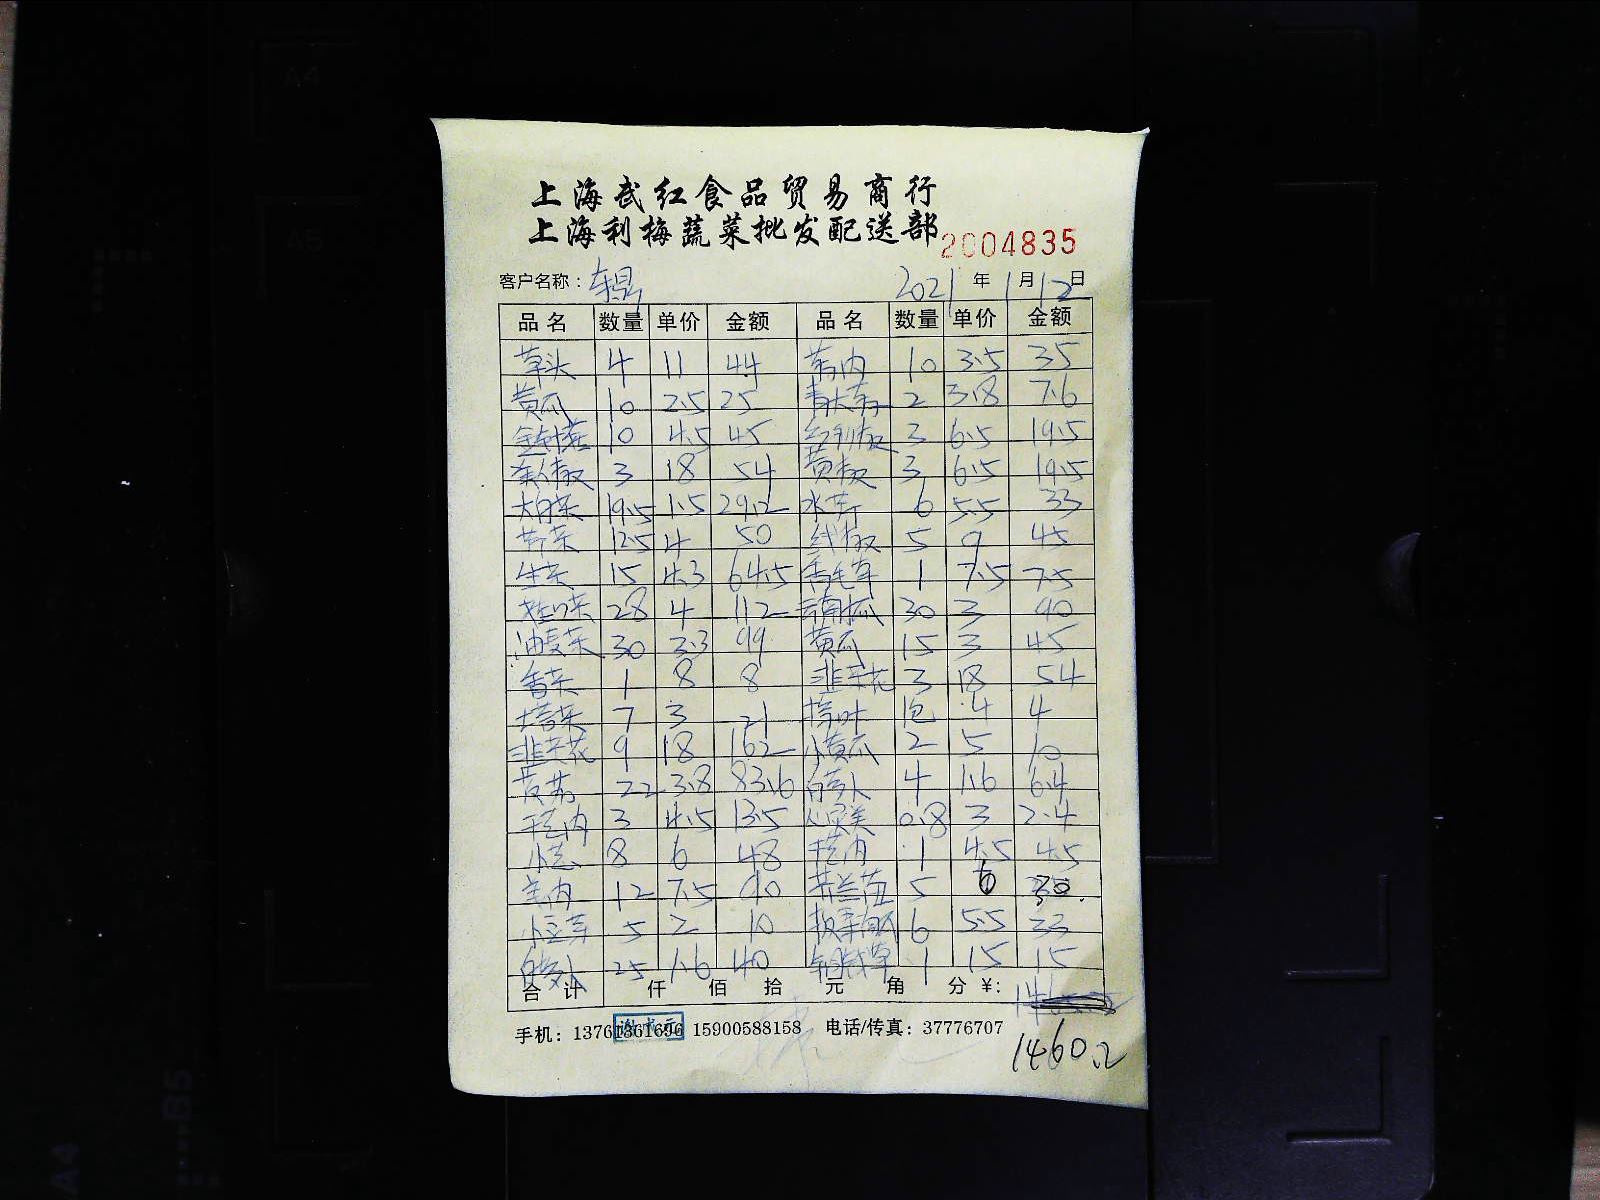 上海武红食品贸易商行
上海利梅蔬菜批发配送部
2004835
客户名称： 2021 年 1 月 12 日
品名 数量 单价 金额 品名 数量 单价 金额
草头 4 11 44 莴内 10 3.5 35
黄瓜 10 2.5 25 2 3.8 7.6
金针菇 10 4.5 45 3 6.5 19.5
3 18 54 黄椒 3 6.5 19.5
大白菜 19.5 1.5 29.2 水芹 6 5.5 33
芹菜 12.5 4 50 线椒 5 9 45
生菜 15 4.3 64.5 香毛草 1 7.5 7.5
28 4 112 云南瓜 30 3 90
油麦菜 30 3.3 99 黄瓜 15 3 45
香菜 1 8 8 韭菜花 3 18 54
塔菜 7 3 21 1包 4 4
韭菜花 9 18 162 小黄瓜 2 5 10
22 3.8 83.6 白萝卜 4 1.6 6.4
3 4.5 13.5 0.8 3 2.4
小葱 8 6 48 1 4.5 4.5
12 7.5 90 5 6 30
小豆芽 5 2 10 6 5.5 33
白萝卜 25 1.6 40 1 15 15
合计 仟 佰 拾 元 角 分 ¥:
手机：13761361696 15900588158 电话/传真：37776707
1460.2